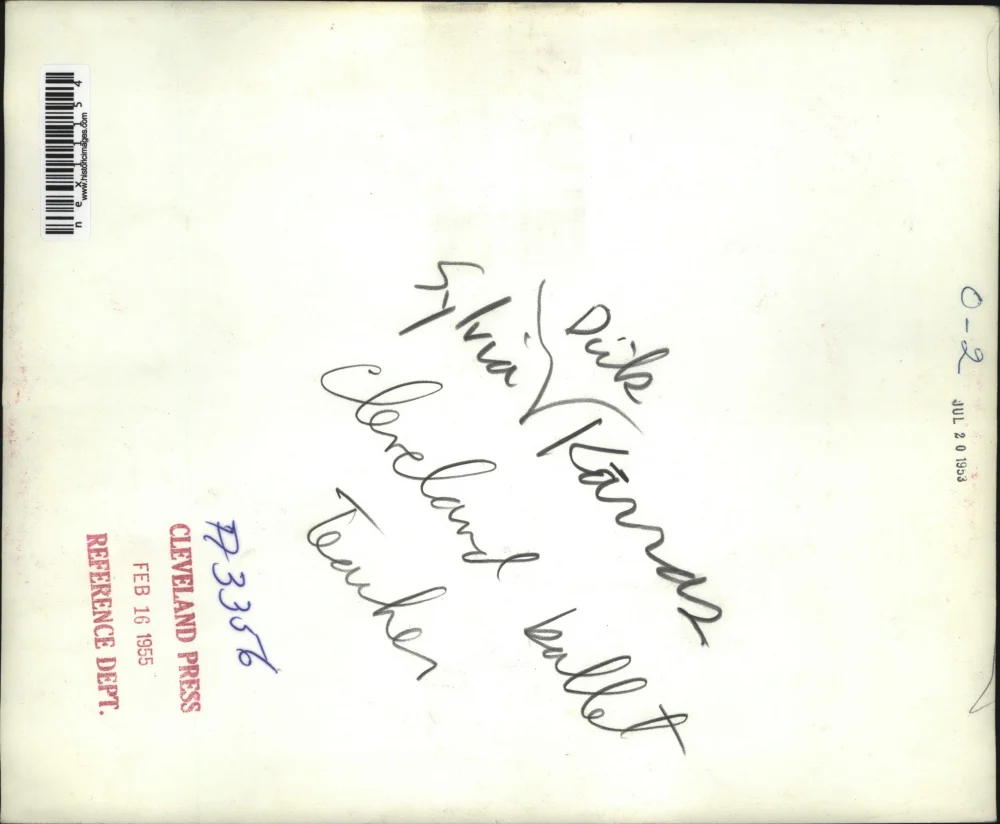 nex11154
www.historicimages.com
Sylvia
Dick
Karras
Cleveland ballet
Teacher
0-2
JUL 20 1953
A3356
CLEVELAND PRESS
FEB 16 1955
REFERENCE DEPT.